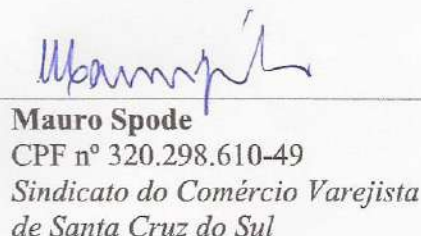 Mauro Spode
CPF nº 320.298.610-49
Sindicato do Comércio Varejista
de Santa Cruz do Sul